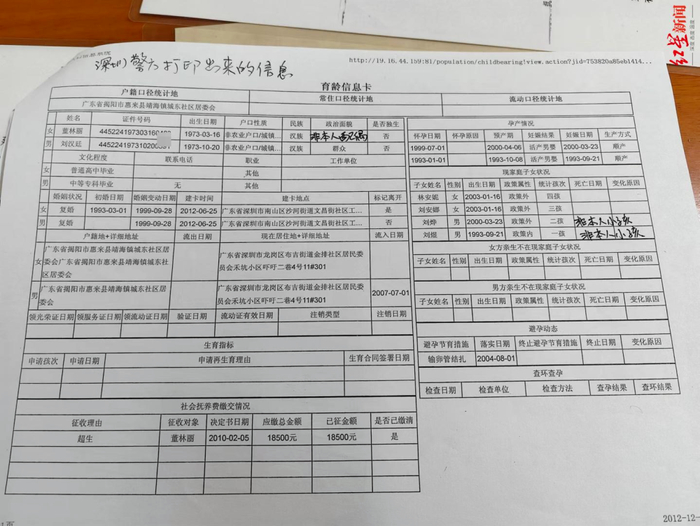 深圳警方打印出来的信息
http://19.16.44.159:81/population/childbearing!view.action?jid=753820a85eb1414...
育龄信息卡
户籍口径统计地 常住口径统计地 流动口径统计地
广东省揭阳市惠来县靖海镇城东社区居委会
姓名 证件号码 出生日期 户口性质 民族 政治面貌 是否独生
女 董林丽 1973-03-16 非农业户口/城镇... 汉族 否
男 刘汉廷 1973-10-20 非农业户口/城镇... 汉族 群众 否
文化程度 联系电话 职业 工作单位
女 普通高中毕业 其他
男 中等专科毕业 无 其他
婚姻状况 初婚日期 婚姻变动日期 建卡时间 建卡地点 标记离开
女 复婚 1993-03-01 1999-09-28 2012-06-25 广东省深圳市南山区沙河街道文昌街社区工... 是
男 复婚 1999-09-28 2012-06-25 广东省深圳市南山区沙河街道文昌街社区工... 否
户籍地+详细地址 流出日期 现在居住地+详细地址 流入日期
女 广东省揭阳市惠来县靖海镇城东社区居委会广东省揭阳市惠来县靖海镇城东社区居委会 广东省深圳市龙岗区布吉街道金排社区居民委员会禾坑小区吓吓二巷4号11#301
男 广东省揭阳市惠来县靖海镇城东社区居委会 广东省深圳市龙岗区布吉街道金排社区居民委员会禾坑小区吓吓二巷4号11#301 2007-07-01
领光荣证日期 领服务证日期 领流动证日期 验证日期 流动证有效日期 注销类型 注销日期
生育指标
申请孩次 申请日期 申请再生育理由 生育合同签署日期
社会抚养费缴交情况
征收理由 征收对象 决定书日期 应缴总金额 已征金额 是否已缴清
超生 董林丽 2010-02-05 18500元 18500元 是
孕产情况
怀孕日期 怀孕原因 预产期 妊娠结果 妊娠日期 生产方式
1999-07-01 2000-04-06 活产男婴 2000-03-23 顺产
1993-01-01 1993-10-08 活产男婴 1993-09-21 顺产
现家庭子女状况
子女姓名 性别 出生日期 政策属性 统计孩次 死亡日期 变化原因
林安妮 女 2003-01-16 政策外 四孩
刘安娜 女 2003-01-16 政策外 三孩
刘烨 男 2000-03-23 政策外 二孩 非本人小孩
刘煜 男 1993-09-21 政策内 一孩 非本人小孩
女方亲生不在现家庭子女状况
子女姓名 性别 出生日期 政策属性 统计孩次 死亡日期 变化原因
男方亲生不在现家庭子女状况
子女姓名 性别 出生日期 政策属性 统计孩次 死亡日期 变化原因
避孕动态
避孕节育措施 落实日期 终止避孕节育措施 终止日期 变化原因
输卵管结扎 2004-08-01
查环查孕
检查日期 检查单位 检查方法 查孕结果 查环结果
2012-12-